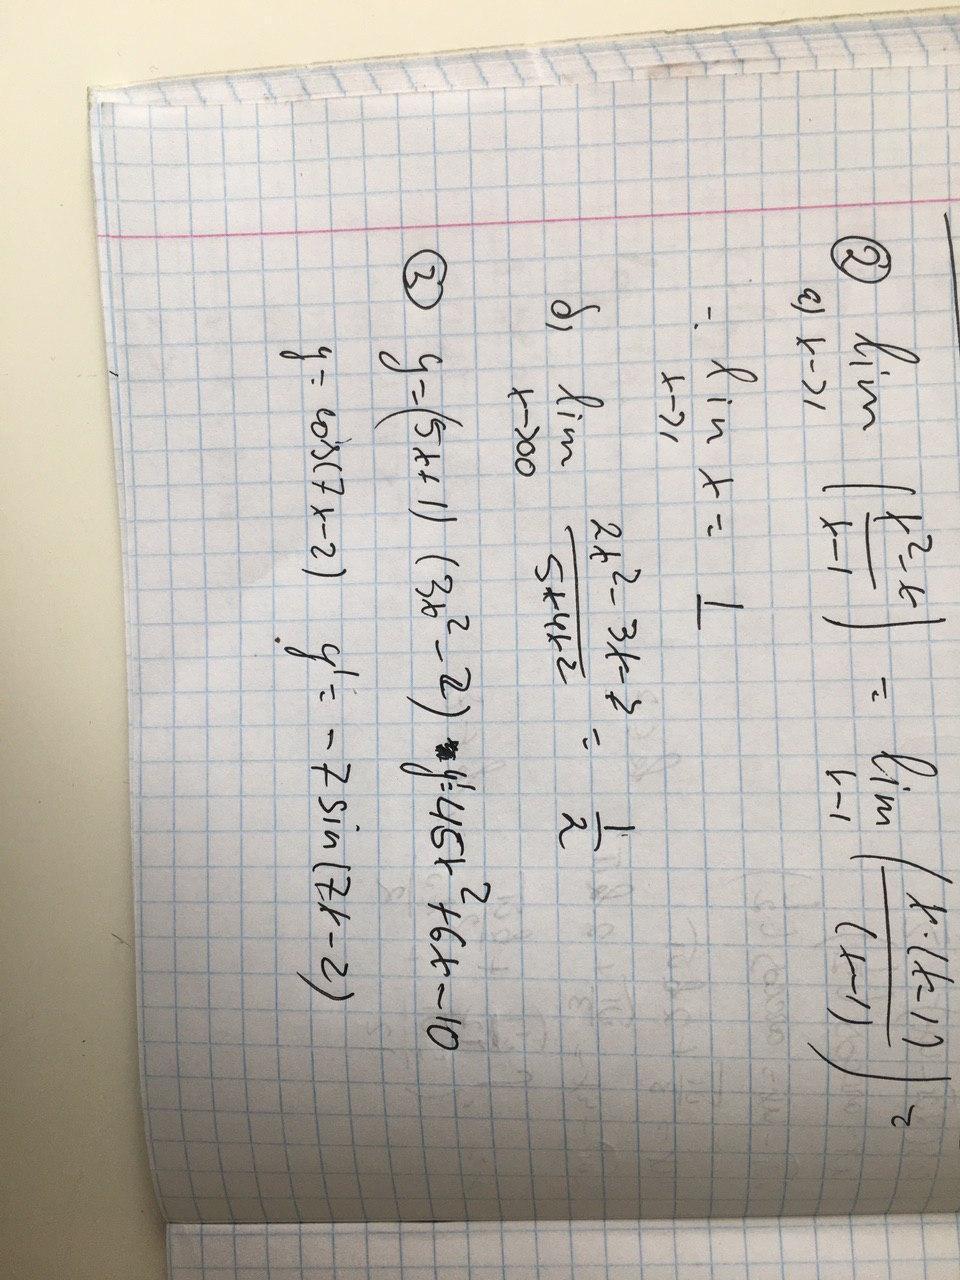 ② lim (x²-x / x-1) = lim (x·(x-1) / (x-1)) =
a) x->1 x-1
: lim x = 1
x->1
б) lim 2x²-3x-7 / 5+4x² = 1/2
x->∞
③ y=(5x+1) (3x²-2) y'=45x²+6x-10
y=cos(7x-2) y'= -7sin(7x-2)